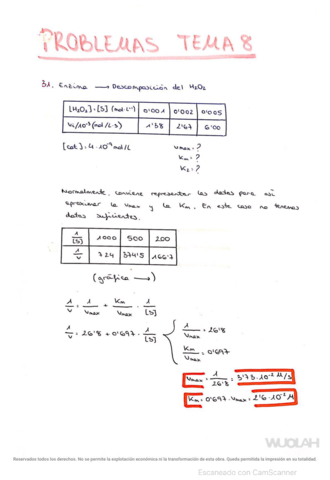 PROBLEMAS TEMA 8
31. Enzima → Descomposición del H₂O₂
[H₂O₂]=[S] (mol·L⁻¹) | 0'001 | 0'002 | 0'005
Vi/10⁻³ (mol/L·s) | 1'38 | 2'67 | 6'00
[cat] = 4·10⁻⁹ mol/L
Vmax = ?
Km = ?
K₂ = ?
Normalmente, conviene representar los datos para así
aproximar la Vmax y la Km. En este caso no tenemos
datos suficientes.
1/[S] | 1000 | 500 | 200
1/V | 724 | 374'5 | 166'7
(gráfica →)
1/V = 1/Vmax + Km/Vmax · 1/[S]
1/V = 26'8 + 0'697 · 1/[S]
1/Vmax = 26'8
Km/Vmax = 0'697
Vmax = 1/26'8 = 3'73·10⁻² M/s
Km = 0'697 · Vmax = 2'6·10⁻² M
WUOLAH
Reservados todos los derechos. No se permite la explotación económica ni la transformación de esta obra. Queda permitida la impresión en su totalidad.
Escaneado con CamScanner